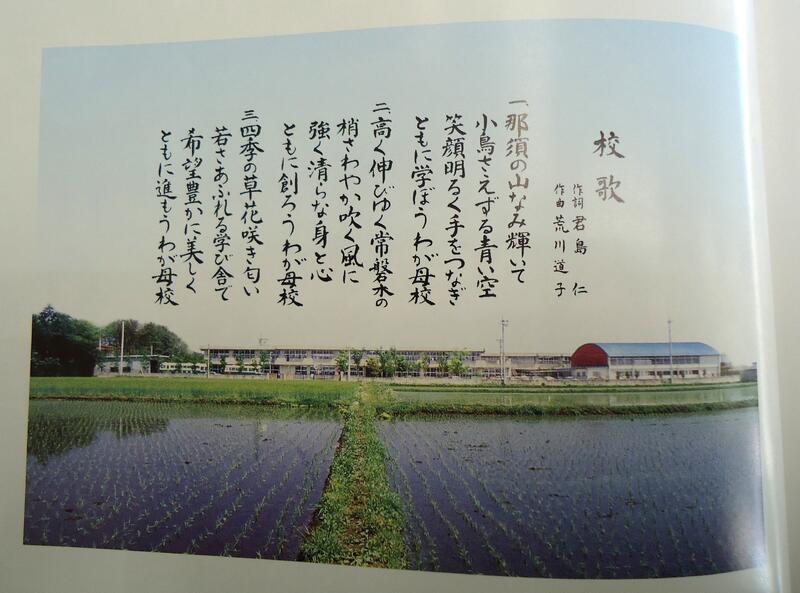 校歌
作詞 君島 仁
作曲 荒川道子
一、那須の山なみ輝いて
小鳥さえずる青い空
笑顔明るく手をつなぎ
ともに学ぼうわが母校
二、高く伸びゆく常磐木の
梢さわやか吹く風に
強く清らな身と心
ともに創ろうわが母校
三、四季の草花咲き匂い
若さあふれる学び舎で
希望豊かに美しく
ともに進もうわが母校